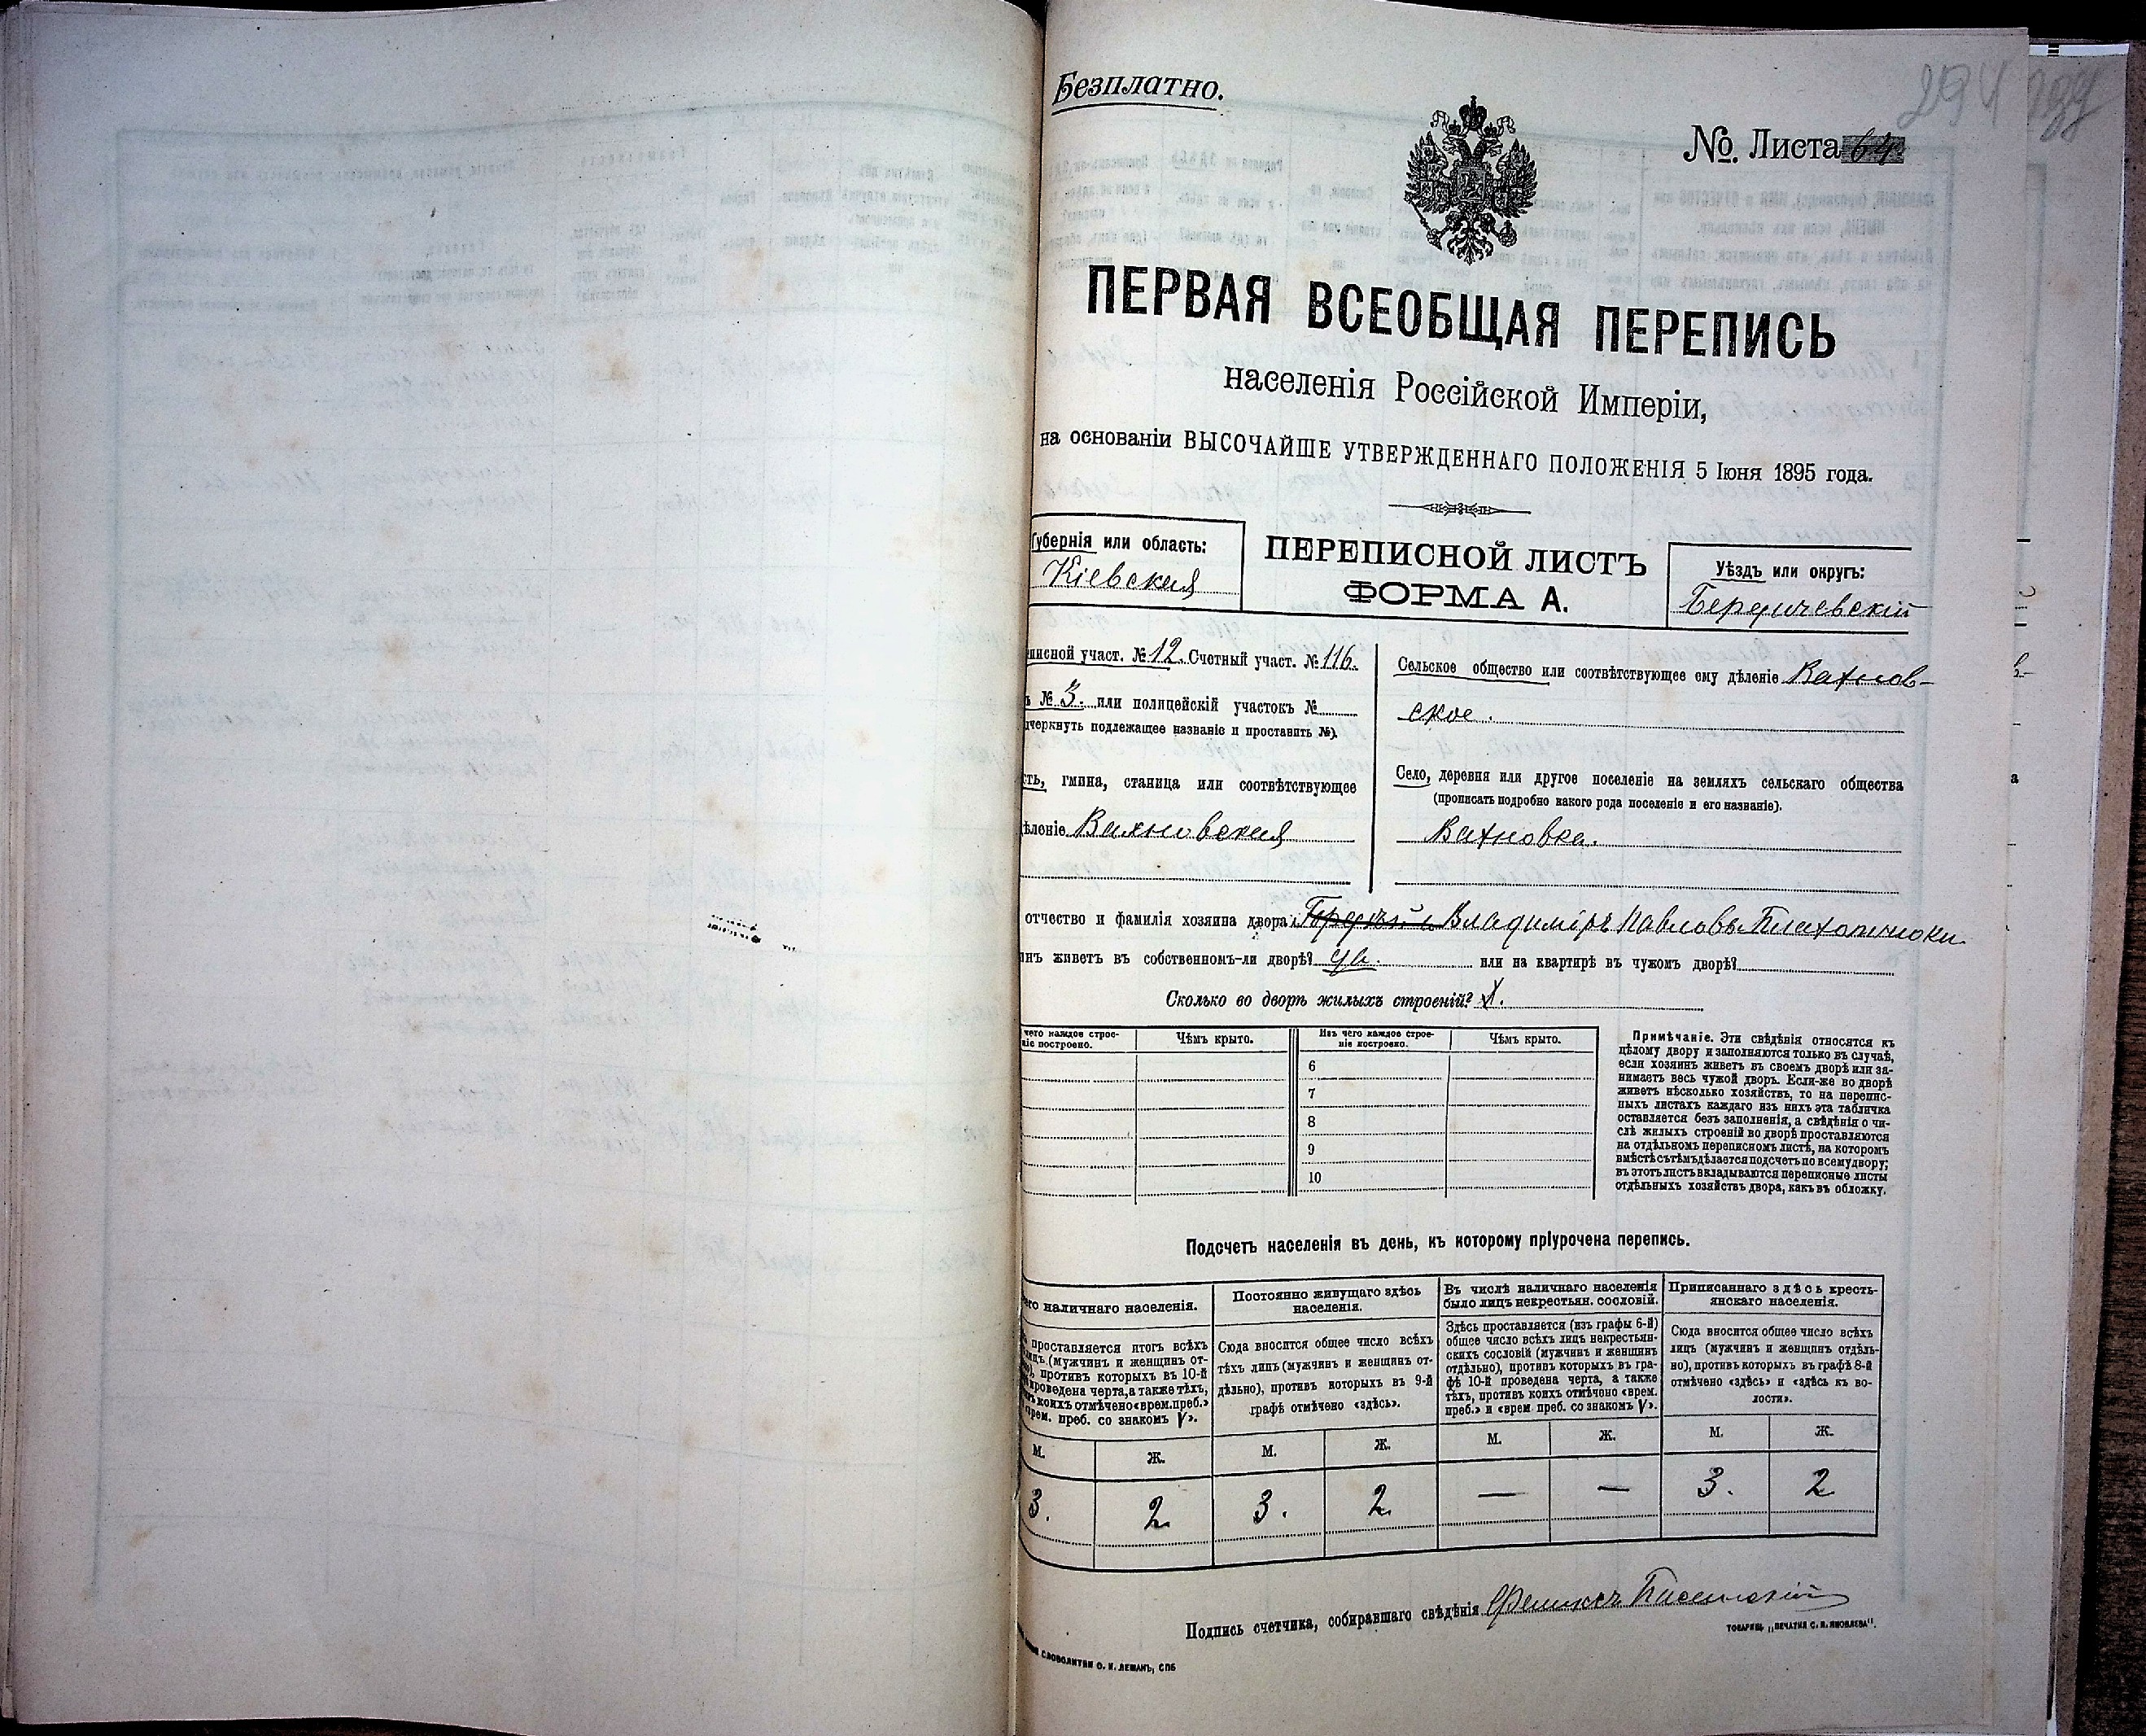 Безплатно.
294
№. Листа 64
ПЕРВАЯ ВСЕОБЩАЯ ПЕРЕПИСЬ
населенія Россійской Имперіи,
на основаніи ВЫСОЧАЙШЕ УТВЕРЖДЕННАГО ПОЛОЖЕНІЯ 5 Іюня 1895 года.
Губернія или область:
Кіевская
ПЕРЕПИСНОЙ ЛИСТЪ
ФОРМА А.
Уѣздъ или округъ:
Бердичевскій
писной участ. № 12. Счетный участ. № 116.
ъ № 3. или полицейскій участокъ №
дчеркнуть подлежащее названіе и проставить №).
сть, гмина, станица или соотвѣтствующее
дѣленіе Вахновская
Сельское общество или соотвѣтствующее ему дѣленіе Вахнов-
ское.
Село, деревня или другое поселеніе на земляхъ сельскаго общества
(прописать подробно какого рода поселеніе и его названіе).
Вахновка.
отчество и фамилія хозяина двора: Владиміръ Павловъ
инъ живетъ въ собственномъ-ли дворѣ? да. или на квартирѣ въ чужомъ дворѣ?
Сколько во дворѣ жилыхъ строеній? 1.
чего каждое строе-
ніе построено.
Чѣмъ крыто.
Изъ чего каждое строе-
ніе построено.
Чѣмъ крыто.
6
7
8
9
10
Примѣчаніе. Эти свѣдѣнія относятся къ
цѣлому двору и заполняются только въ случаѣ,
если хозяинъ живетъ въ своемъ дворѣ или за-
нимаетъ весь чужой дворъ. Если-же во дворѣ
живетъ нѣсколько хозяйствъ, то на перепис-
ныхъ листахъ каждаго изъ нихъ эта табличка
оставляется безъ заполненія, а свѣдѣнія о чи-
слѣ жилыхъ строеній во дворѣ проставляются
на отдѣльномъ переписномъ листѣ, на которомъ
вмѣстѣ съ тѣмъ дѣлается подсчетъ по всему двору;
въ этотъ листъ вкладываются переписные листы
отдѣльныхъ хозяйствъ двора, какъ въ обложку.
Подсчетъ населенія въ день, къ которому пріурочена перепись.
его наличнаго населенія.
проставляется итогъ всѣхъ
лицъ (мужчинъ и женщинъ от-
), противъ которыхъ въ 10-й
проведена черта, а также тѣхъ,
коихъ отмѣчено «врем. преб.»
«врем. преб. со знакомъ V».
М. Ж.
3. 2
Постоянно живущаго здѣсь
населенія.
Сюда вносится общее число всѣхъ
тѣхъ лицъ (мужчинъ и женщинъ от-
дѣльно), противъ которыхъ въ 9-й
графѣ отмѣчено «здѣсь».
М. Ж.
3. 2
Въ числѣ наличнаго населенія
было лицъ некрестьян. сословій.
Здѣсь проставляется (изъ графы 6-й)
общее число всѣхъ лицъ некрестьян-
скихъ сословій (мужчинъ и женщинъ
отдѣльно), противъ которыхъ въ гра-
фѣ 10-й проведена черта, а также
тѣхъ, противъ коихъ отмѣчено «врем.
преб.» и «врем. преб. со знакомъ V».
М. Ж.
— —
Приписаннаго здѣсь кресть-
янскаго населенія.
Сюда вносится общее число всѣхъ
лицъ (мужчинъ и женщинъ отдѣль-
но), противъ которыхъ въ графѣ 8-й
отмѣчено «здѣсь» и «здѣсь къ во-
лости».
М. Ж.
3. 2
Подпись счетчика, собиравшаго свѣдѣнія Феликсъ
СЛОВОЛИТНИ О. И. ЛЕМАНЪ, СПБ
ТОВАРИЩ. „ПЕЧАТНЯ С. П. ЯКОВЛЕВА".